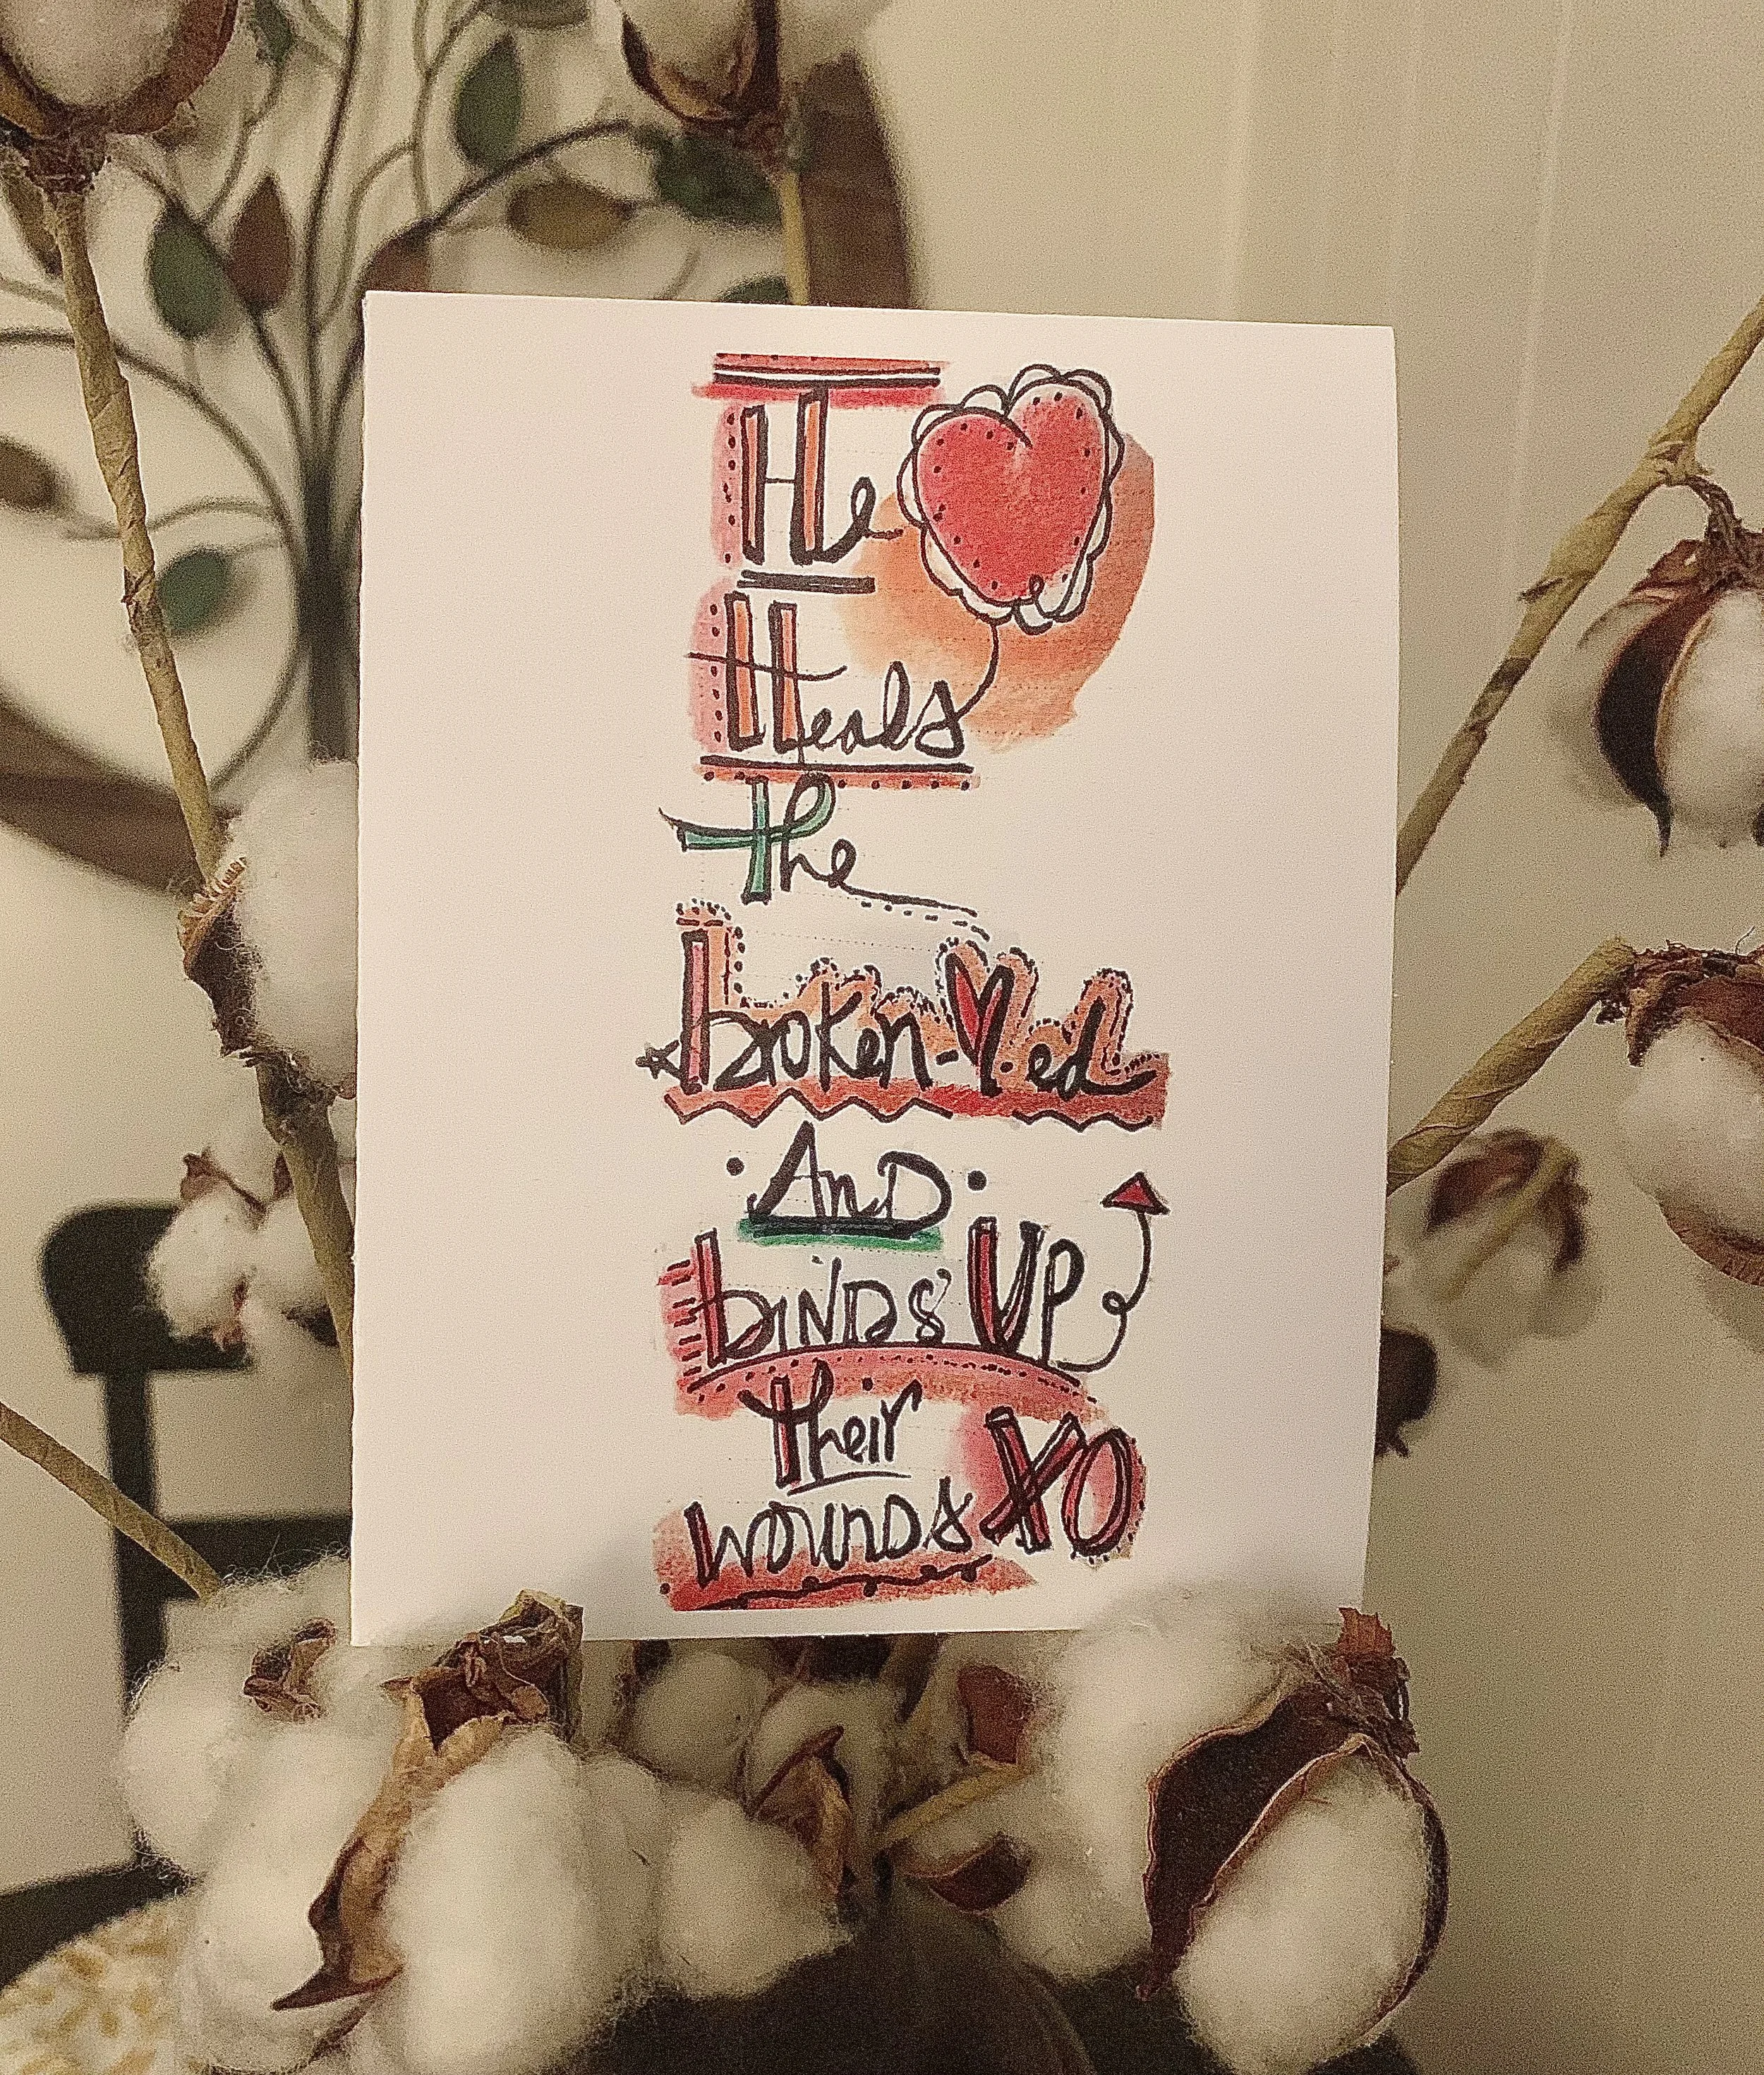 He
Heals
the
broken-♥ed
And
binds up
their
wounds XO